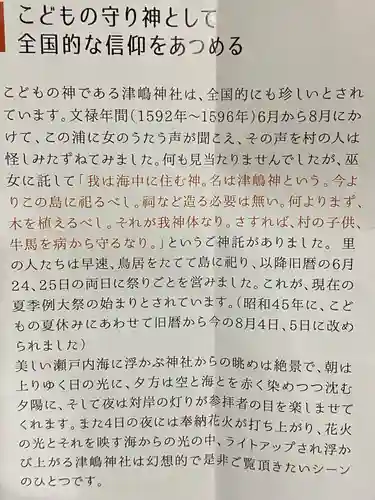 こどもの守り神として
全国的な信仰をあつめる
こどもの神である津嶋神社は、全国的にも珍しいとされ
ています。文禄年間(1592年〜1596年)6月から8月にか
けて、この浦に女のうたう声が聞こえ、その声を村の人は
怪しみたずねてみました。何も見当たりませんでしたが、巫
女に託して「我は海中に住む神。名は津嶋神という。今よ
りこの島に祀るべし。祠など造る必要は無い。何よりまず、
木を植えるべし。それが我神体なり。さすれば、村の子供、
牛馬を病から守るなり。」というご神託がありました。 里
の人たちは早速、鳥居をたてて島に祀り、以降旧暦の6月
24、25日の両日に祭りごとを営みました。これが、現在の
夏季例大祭の始まりとされています。(昭和45年に、こど
もの夏休みにあわせて旧暦から今の8月4日、5日に改め
られました)
美しい瀬戸内海に浮かぶ神社からの眺めは絶景で、朝は
上りゆく日の光に、夕方は空と海とを赤く染めつつ沈む
夕陽に、そして夜は対岸の灯りが参拝者の目を楽しませて
くれます。また4日の夜には奉納花火が打ち上がり、花火
の光とそれを映す海からの光の中、ライトアップされ浮か
び上がる津嶋神社は幻想的で是非ご覧頂きたいシーン
のひとつです。